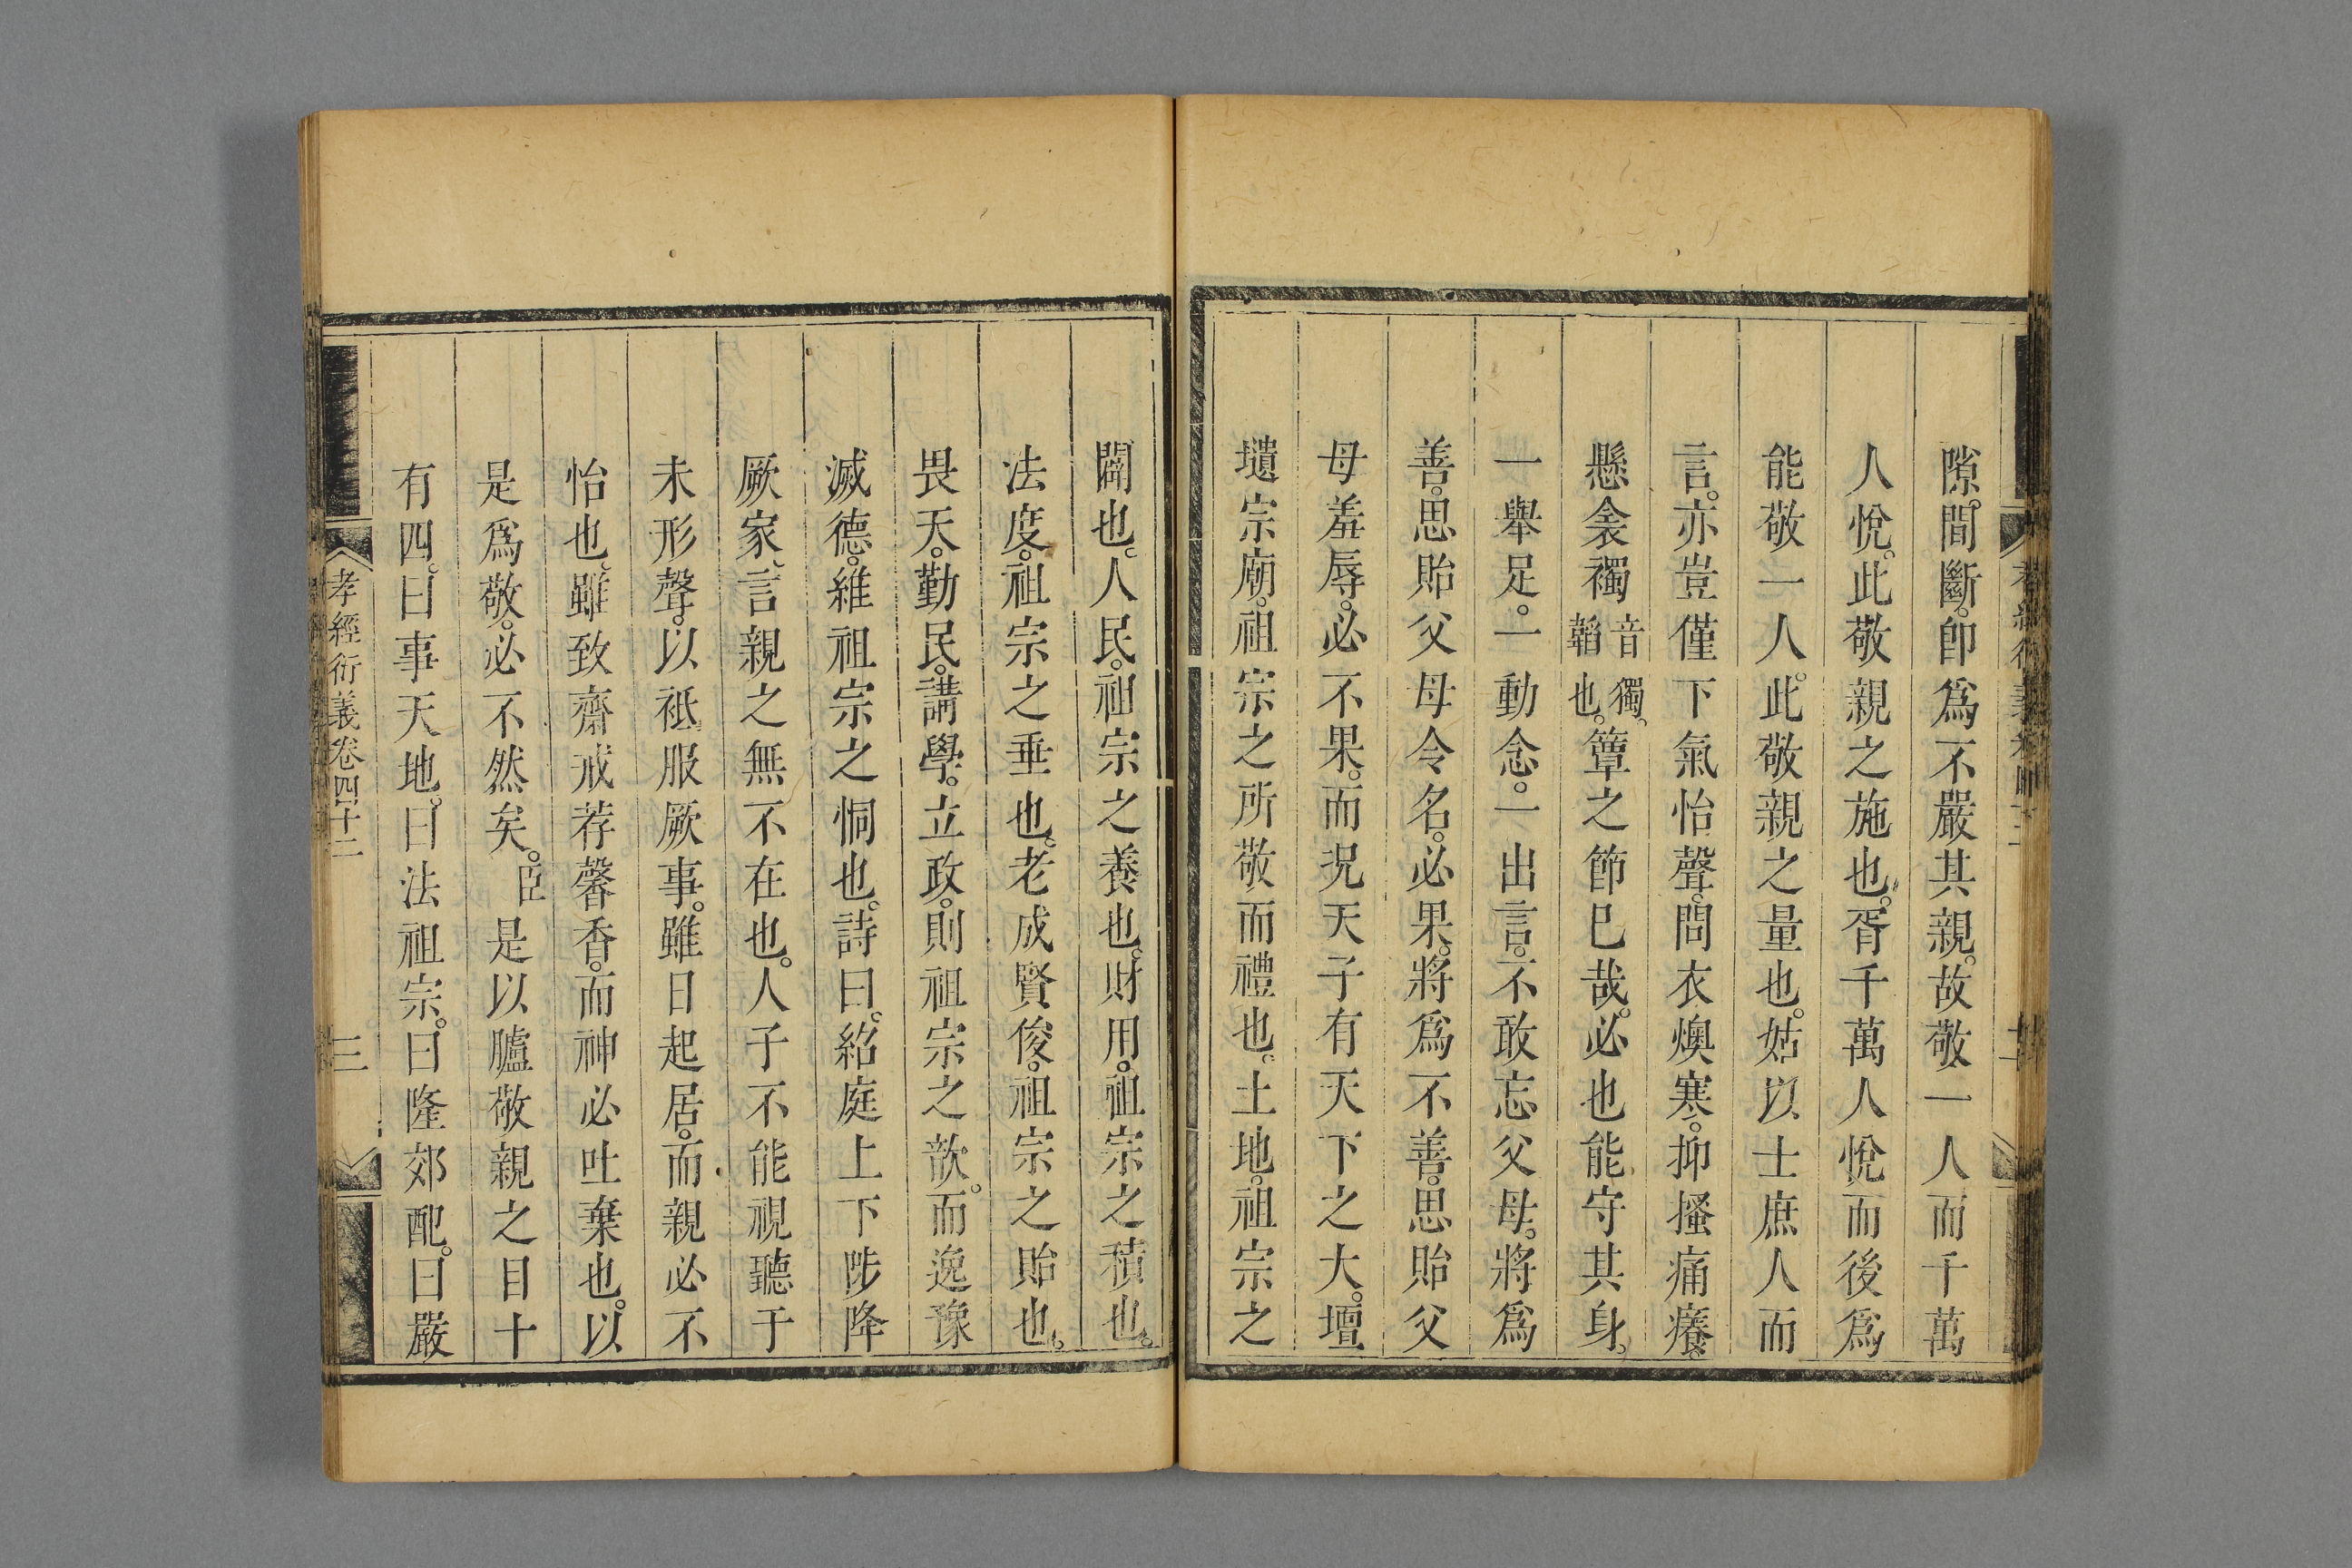 隙。間斷。卽爲不嚴其親。故敬一人而千萬
人悅。此敬親之施也。胥千萬人悅而後爲
能敬一人。此敬親之量也。姑以士庶人而
言。亦豈僅下氣怡聲。問衣燠寒。抑搔痛癢。
懸衾襡音獨。韜也。簟之節已哉。必也能守其身。
一舉足。一動念。一出言。不敢忘父母。將爲
善。思貽父母令名。必果。將爲不善。思貽父
母羞辱。必不果。而況天子有天下之大。壇
壝宗廟。祖宗之所敬而禮也。土地。祖宗之
闢也。人民。祖宗之養也。財用。祖宗之積也。
法度。祖宗之垂也。老成賢俊。祖宗之貽也。
畏天。勤民。講學。立政。則祖宗之歆。而逸豫
滅德。維祖宗之恫也。詩曰。紹庭上下陟降
厥家、言親之無不在也。人子不能視聽于
未形聲。以祗服厥事。雖日起居。而親必不
怡也、雖致齋戒荐馨香。而神必吐棄也。以
是爲敬。必不然矣。臣是以臚敬親之目十
有四。曰事天地。曰法祖宗。曰隆郊配。曰嚴
孝經衍義卷四十二
三